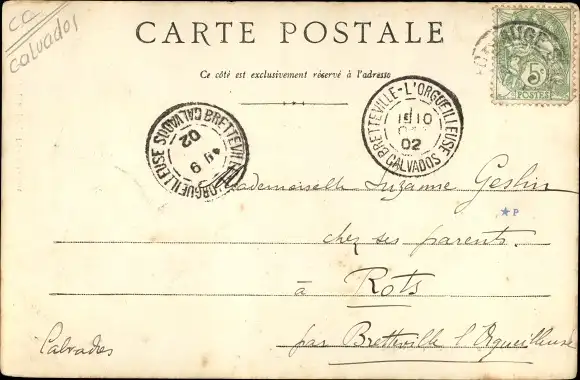 CC
Calvados
CARTE POSTALE
Ce côté est exclusivement réservé à l'adresse
5c
POSTES
BRETTEVILLE-L'ORGUEILLEUSE
15 10
02
CALVADOS
BRETTEVILLE-L'ORGUEILLEUSE CALVADOS
9
02
Mademoiselle Suzanne Geslin
★P
chez ses parents.
à Rots
par Bretteville l'Orgueilleuse
Calvados